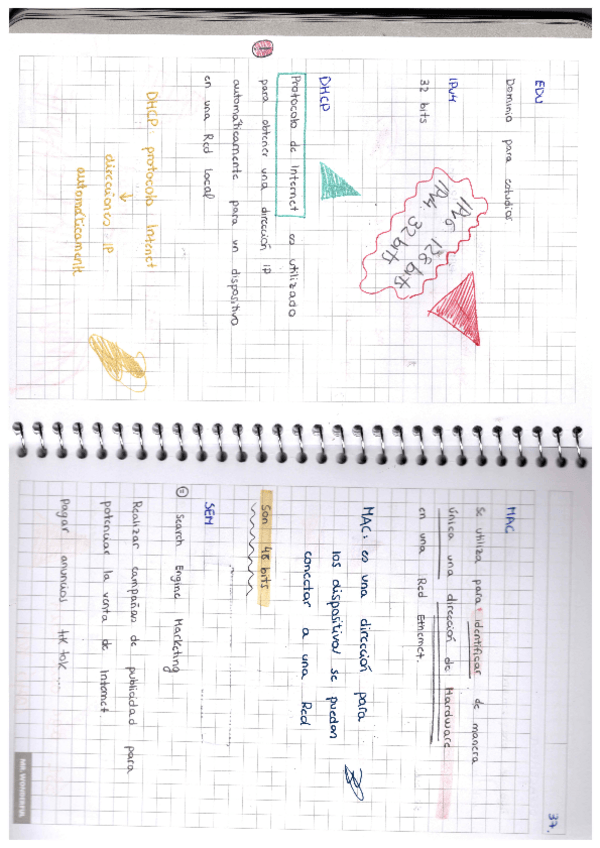 EDU
Dominio para estudiar
IPv4
32 bits
IPv6 128 bits
IPv4 32 bits
DHCP
Protocolo de Internet es utilizado
para obtener una dirección IP
automáticamente para un dispositivo
en una Red Local
DHCP: protocolo Internet
direcciones IP
automáticamente
37.
MAC
Se utiliza para identificar de manera
única una dirección de Hardware
en una Red Ethernet.
MAC: es una dirección para
los dispositivos se puedan
conectar a una Red
Son 48 bits
SEM
Search Engine Marketing
Realizar campañas de publicidad para
potenciar la venta de Internet.
Pagar anuncios tik tok ....
MR. WONDERFUL